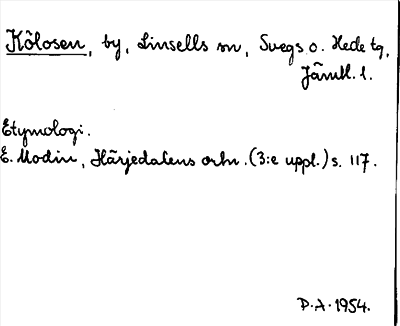 Kölosen, by, Linsells sn, Svegs o. Hede tg,
Jämtl. l.
Etymologi.
E. Modin, Härjedalens ortn. (3:e uppl.) s. 117.
D.A. 1954.